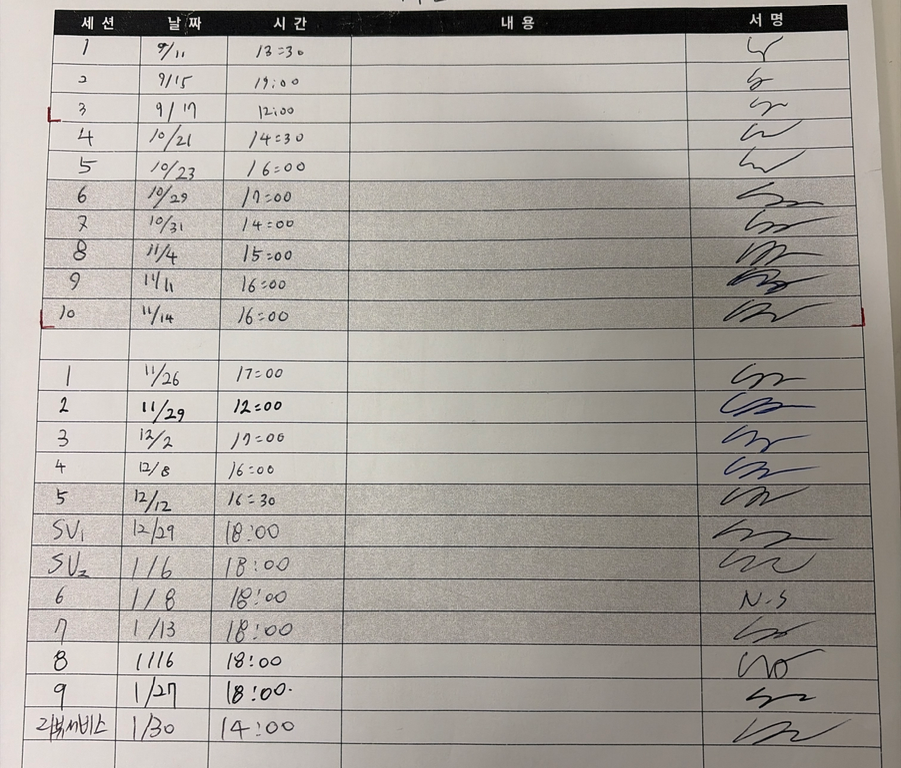 세션 날짜 시간 내용 서명
1 9/11 13:30
2 9/15 19:00
3 9/17 12:00
4 10/21 14:30
5 10/23 16:00
6 10/29 17:00
7 10/31 14:00
8 11/4 15:00
9 11/11 16:00
10 11/14 16:00
1 11/26 17:00
2 11/29 12:00
3 12/2 17:00
4 12/8 16:00
5 12/12 16:30
SV1 12/29 18:00
SV2 1/6 18:00
6 1/8 18:00 N.S
7 1/13 18:00
8 1/16 18:00
9 1/27 18:00
리뷰서비스 1/30 14:00